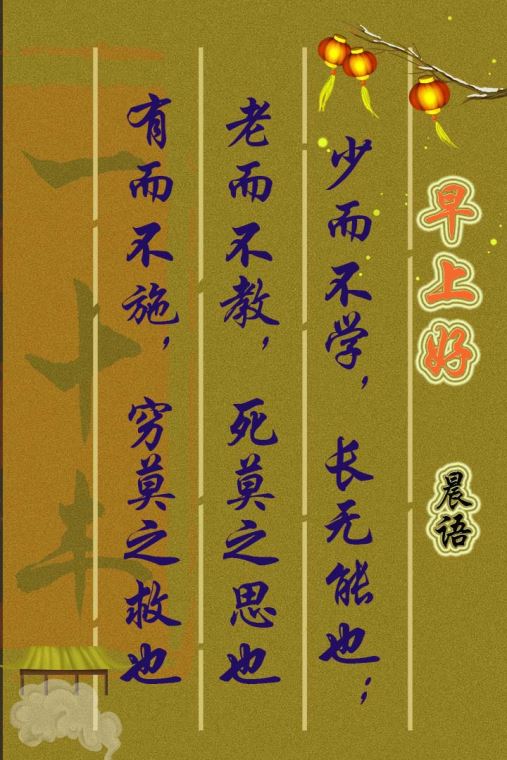 早上好
晨语
少而不学，长无能也；
老而不教，死莫之思也
有而不施，穷莫之救也
一十丰